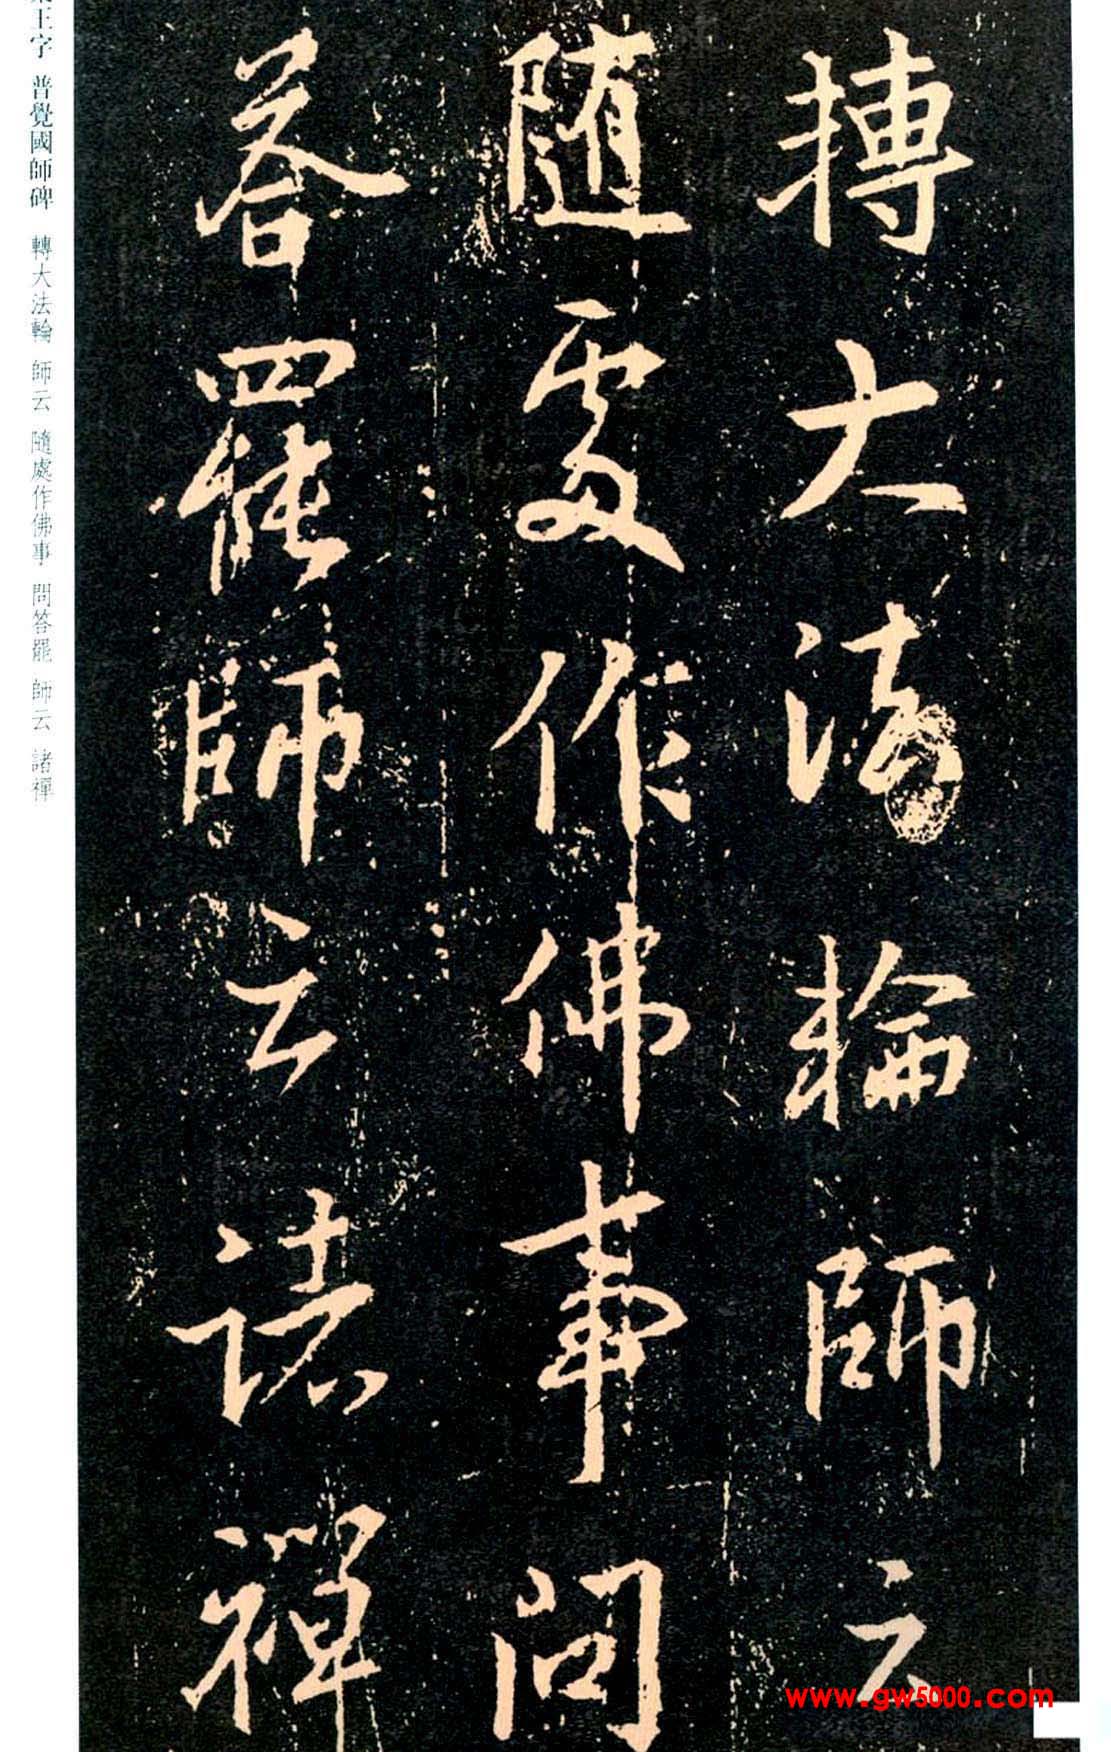 轉大法輪師云
隨處作佛事問
答罷師云諸禪
王字 普覺國師碑 轉大法輪 師云 隨處作佛事 問答罷 師云 諸禪
www.gw5000.com